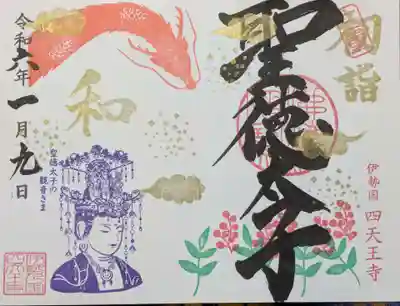 初詣
聖徳太子
伊勢国 四天王寺
和
聖徳太子の
観音さま
令和六年一月九日